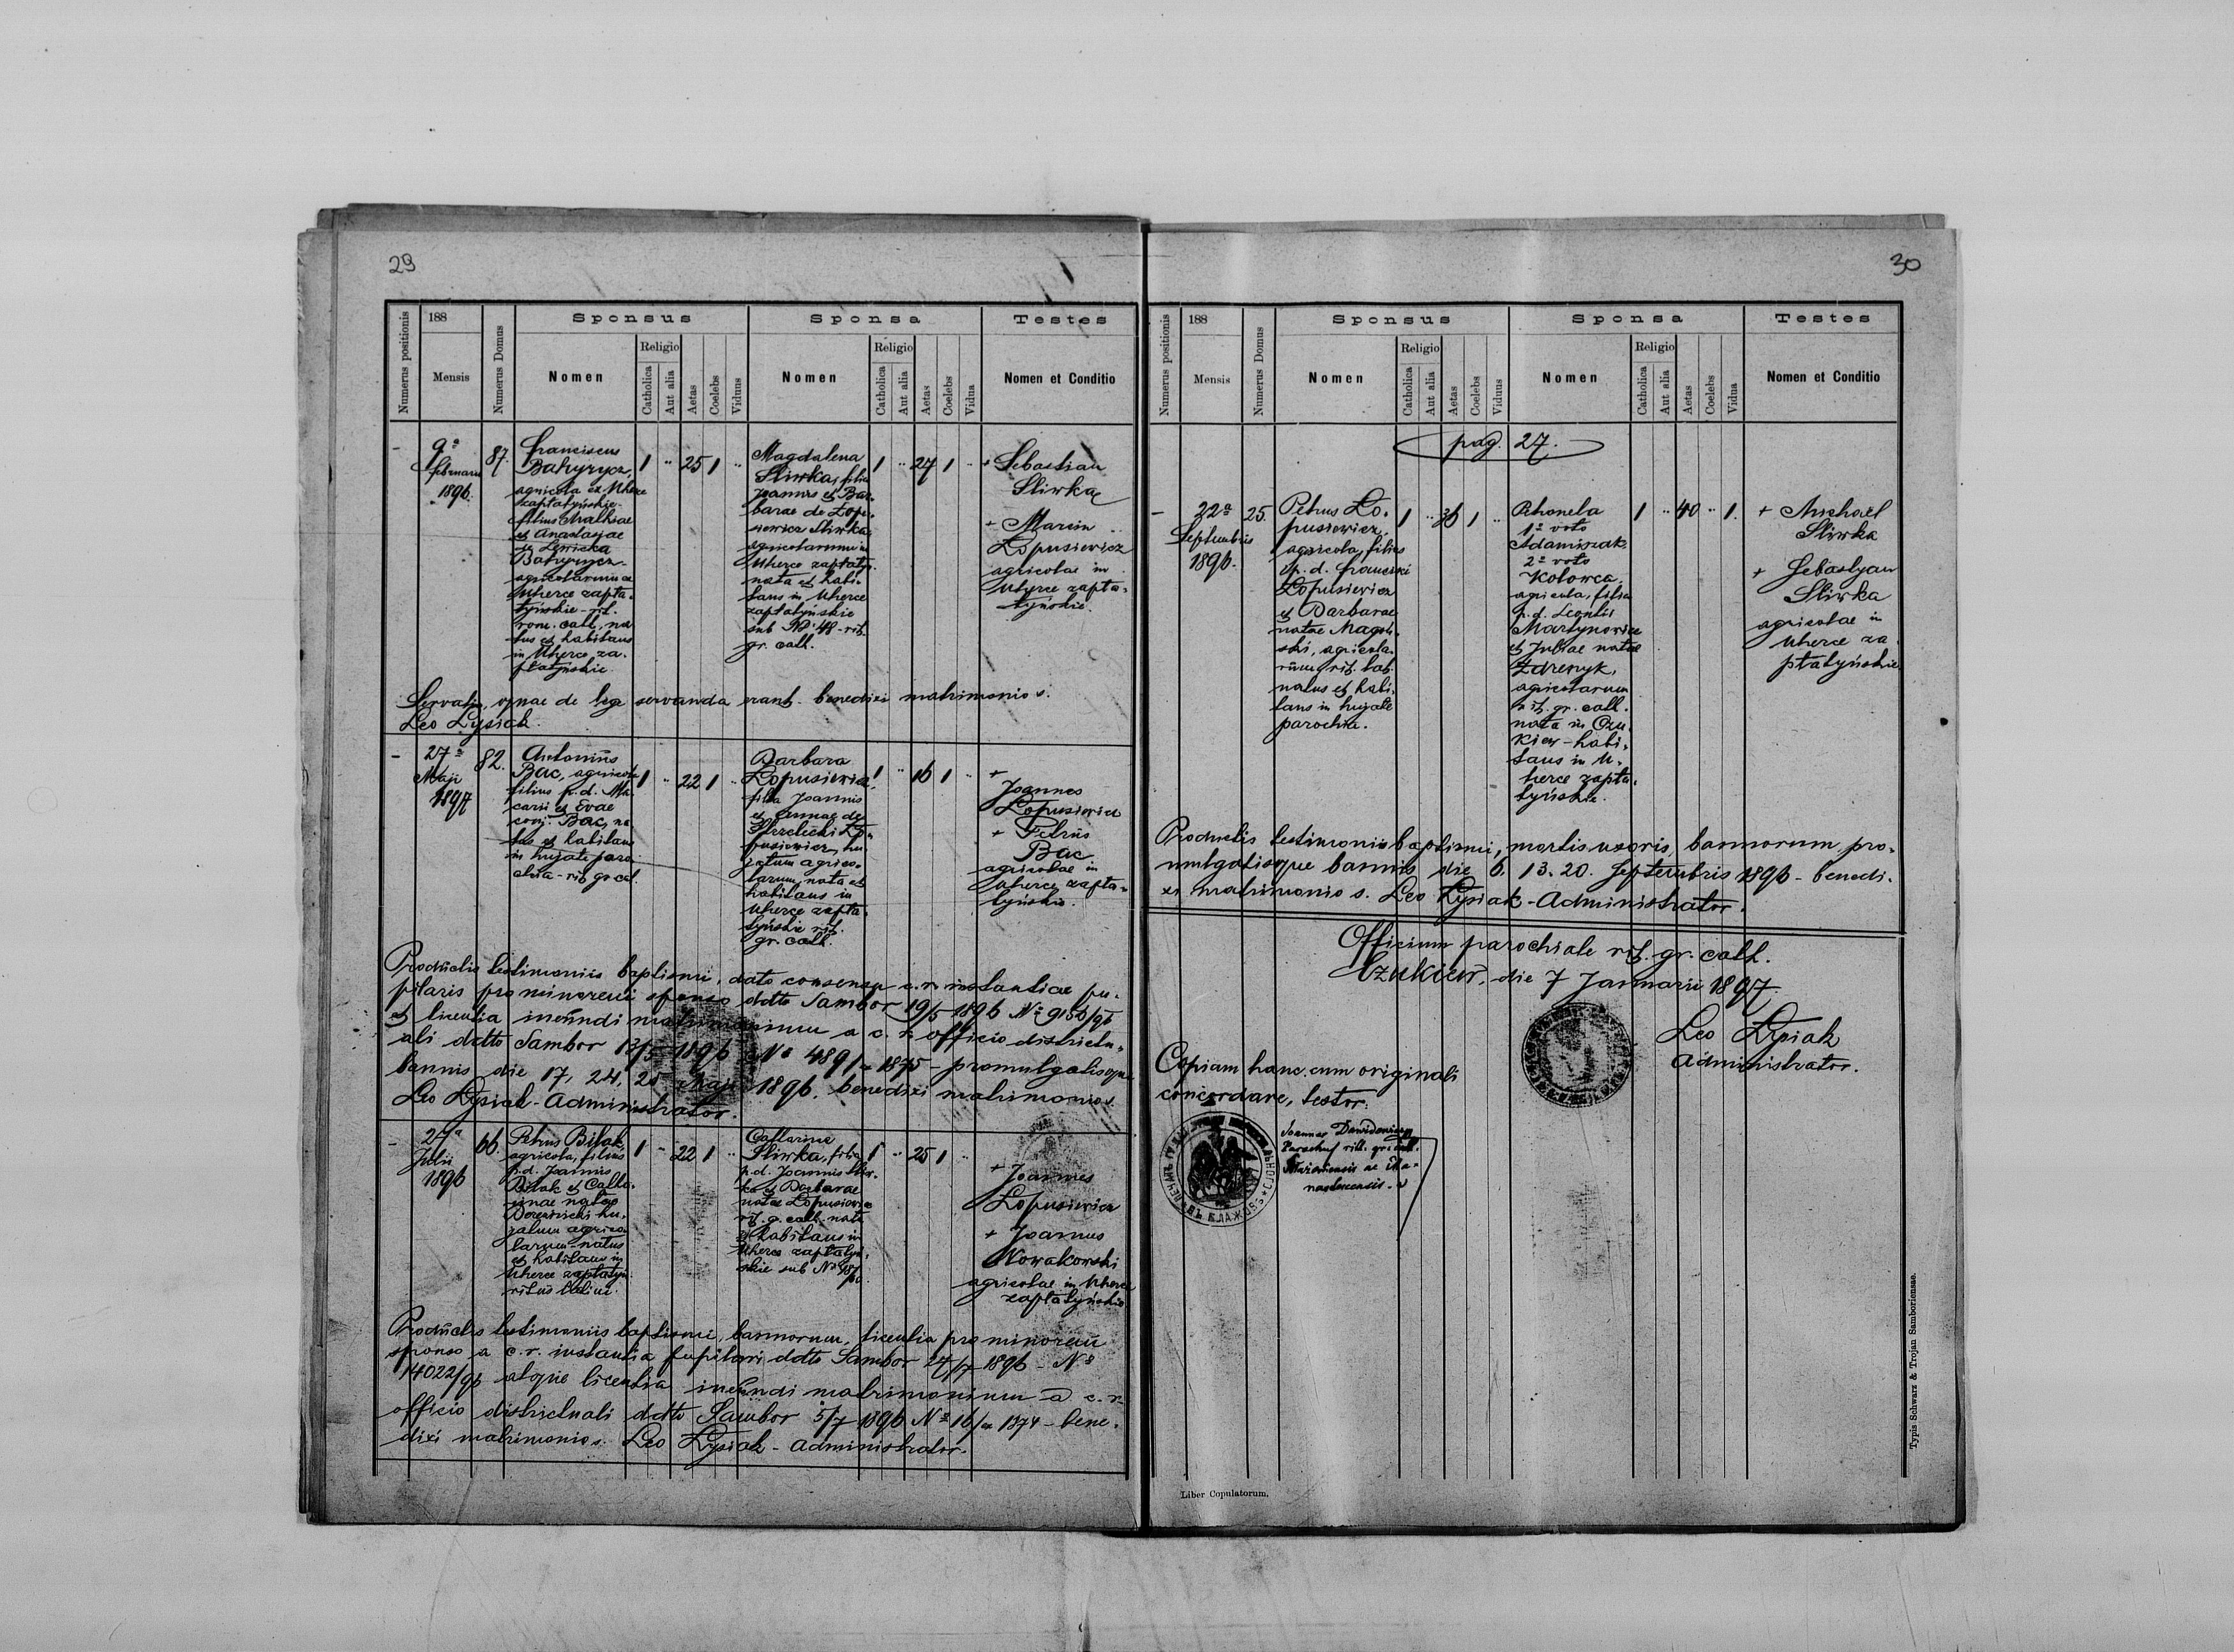 29
Numerus positionis
188
Mensis
Numerus Domus
Sponsus
Nomen
Religio
Catholica
Aut alia
Aetas
Coelebs
Viduus
Sponsa
Nomen
Religio
Catholica
Aut alia
Aetas
Coelebs
Vidua
Testes
Nomen et Conditio
9a
Februarii
1896.
87.
Franciscus
Batyrycz,
agricola ex Uherce
zapłatyńskie
filius Mathiae
et Anastasiae
de Lewicka
Batyrycz
agricolarum ex
Uherce zapła-
tyńskie - rit.
rom. cath., na-
tus et habitans
in Uherce za-
płatyńskie.
1 " 25 1 "
Magdalena
Sliwka, filia
Joannis et Bar-
barae de Łopu-
siewicz Sliwka
agricolarum in
Uherce zapłaty.
nata et habi-
tans in Uherce
zapłatyńskie
sub No 48 - rit.
gr. cath.
1 " 24 1 "
+ Sebastian
Sliwka
+ Marcin
Łopusiewicz
agricolae in
Uherce zapła-
tyńskie.
Servatis, quae de lege servanda erant - benedixi matrimonio s.
Leo Łysiak.
27a
Maji
1897
82.
Antonius
Bac, agricola
filius p. d. Ma-
carii et Evae
conj. Bac, na-
tus et habitans
in hujate paro-
chia - rit. gr. cat.
1 " 22 1 "
Barbara
Łopusiewicz,
filia Joannis
et Annae de
Łopu-
siewicz, hu-
jatum agrico-
larum, nata et
habitans in
Uherce zapła-
tyńskie rit.
gr. cath.
1 " 16 1 "
+
Joannes
Łopusiewicz
+ Petrus
Bac
agricolae in
Uherce zapła-
tyńskie.
Productis testimoniis baptismi, dato consensu c. r. instantiae pu-
pilaris pro minorenni sponso ddto Sambor 19/5 1896 No 9156/96
et licentia ineundi matrimonium a c. r. officio districtu-
ali ddto Sambor 13/5 1896 No 4891 1875 - promulgatisque
bannis die 17, 24, 25 Maji 1896. benedixi matrimonio s.
Leo Łysiak - Administrator.
27a
Julii
1896
66.
Petrus Bilak
agricola, filius
p. d. Joannis
Bilak et Catha-
rinae natae
hu-
jatum agrico-
larum - natus
et habitans in
Uherce zapłatyń.
ritus latini.
1 " 22 1 "
Catharina
Sliwka, filia
p. d. Joannis Sliw-
ka et Barbarae
natae Łopusiewicz
rit. g. cath. nata
et habitans in
Uherce zapłatyń-
skie sub No 48
1 " 25 1 "
+ Joannes
Łopusiewicz
+ Joannes
Nowakowski
agricolae in Uherce
zapłatyńskie
Productis testimoniis baptismi, bannorum, licentia pro minorenni
sponso a c. r. instantia pupilari ddto Sambor 24/7 1896 - No
14022/96 atque licentia ineundi matrimonium a c. r.
officio districtuali ddto Sambor 5/7 1896 No 16/ 1874 - bene-
dixi matrimonio s. Leo Łysiak - Administrator.
30
Numerus positionis
188
Mensis
Numerus Domus
Sponsus
Nomen
Religio
Catholica
Aut alia
Aetas
Coelebs
Viduus
Sponsa
Nomen
Religio
Catholica
Aut alia
Aetas
Coelebs
Vidua
Testes
Nomen et Conditio
pag. 27.
22a
Septembris
1896.
25.
Petrus Ło-
pusiewicz,
agricola, filius
p. d. Francisci
Łopusiewicz
et Barbarae
natae Magoń-
ski, agricola-
rum rit. lat.
natus et habi-
tans in hujate
parochia.
1 " 36 1 "
Petronela
1o voto
Adamiszak
2o voto
Kotowca,
agricola, filia
p. d. Leontii
Martynowicz
et Juliae natae
Zdrenyk,
agricolarum
rit. gr. cath.
nata in Czu-
kiew - habi-
tans in U-
herce zapła-
tyńskie.
1 " 40 " 1.
+ Michael
Sliwka
+ Sebastyan
Sliwka
agricolae in
Uherce za-
płatyńskie
Productis testimoniis baptismi, mortis uxoris, bannorum, pro-
mulgatisque bannis die 6. 13. 20. Septembris 1896 - benedi-
xi matrimonio s. Leo Łysiak - Administrator.
Officium parochiale rit. gr. cath.
Czukiew, die 7 Januarii 1897.
Leo Łysiak
Administrator.
Copiam hanc cum originali
concordare, testor.
Joannes Dawidowicz
Parochus rit. gr. cath.
Liber Copulatorum.
Typis Schwarz & Trojan Samboriensae.